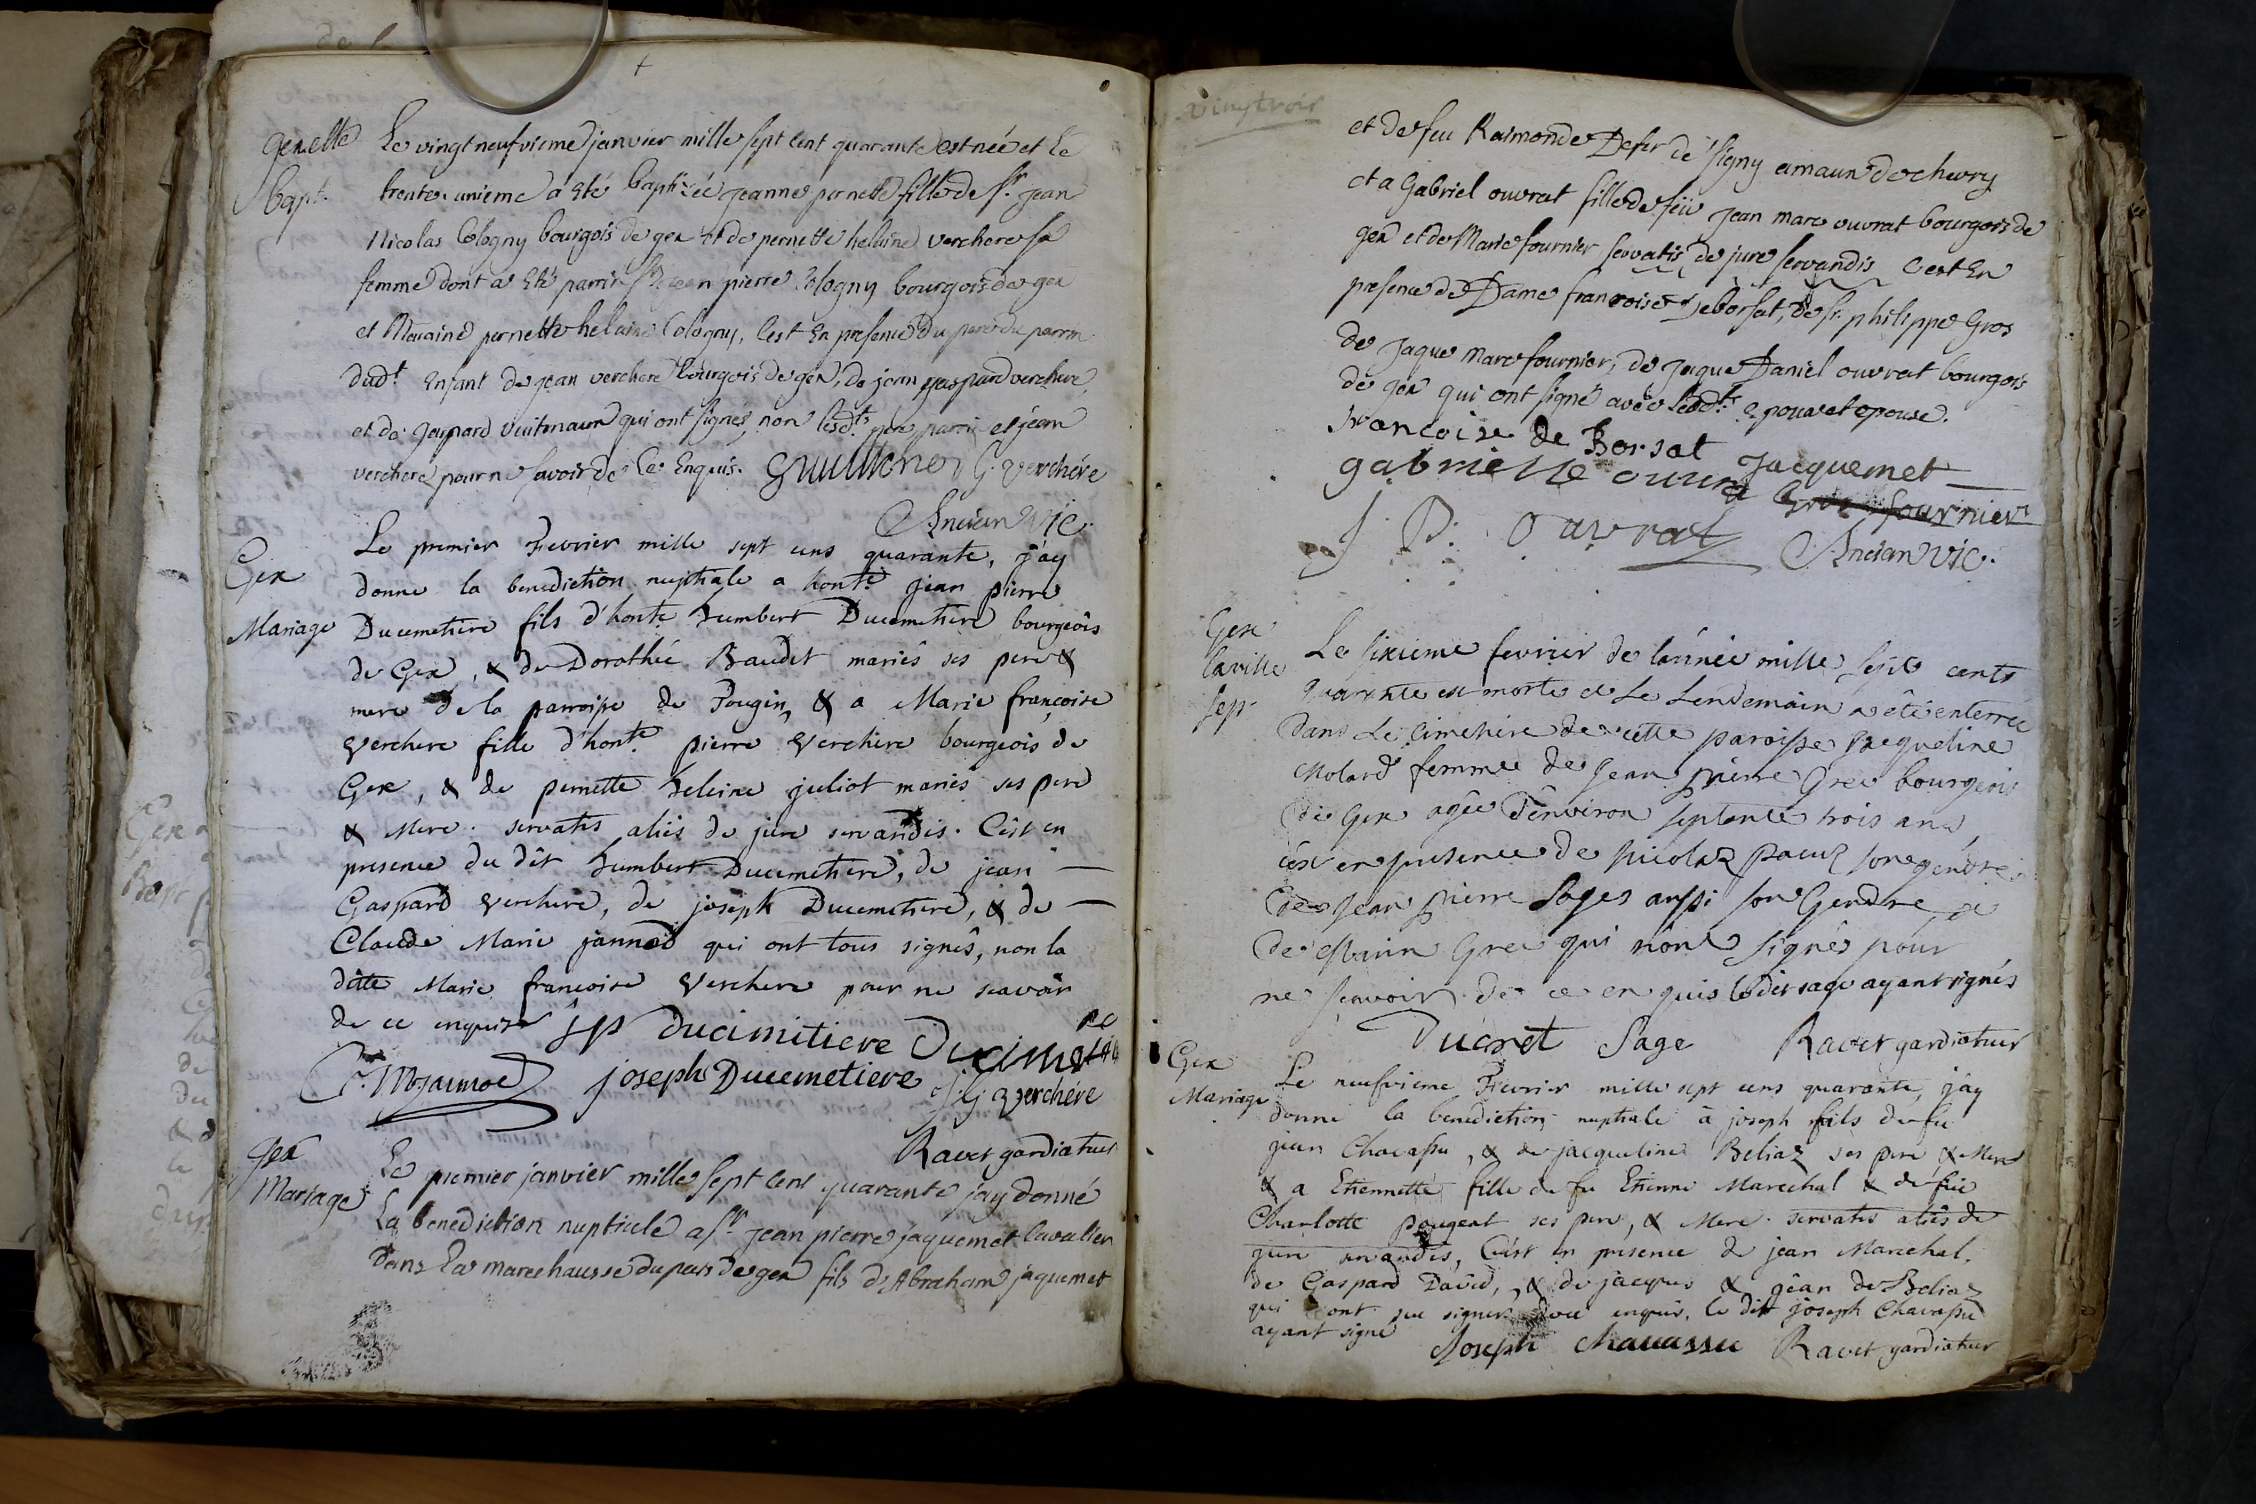 gexelle
Bapt.
Le vingt neufvieme janvier mille sept cent quarante est née et le
trente unieme a eté baptizée jeanne pernette fille de Sr. jean
Nicolas Cologny bourgois de gex et de pernette helaine verchere sa
femme dont a eté parrin Sr jean pierre Cologny bourgois de gex
et Maraine pernette helaine Cologny, c'est en presence du pere du parrin
dudt. enfant de jean verchere bourgois de gex, de jean gaspard verchere,
et de gaspard vuitmaur qui ont signés, non lesdts pere parrin et jean
verchere pour ne savoir de ce enquis. G. verchére
Ancian vic.
Gex
Mariage
Le premier Fevrier mille sept cens quarante, j'ay
donne la benediction nuptiale a honte. jean pierre
Ducemetiere fils d'honte humbert Ducemetiere bourgeois
de Gex, & de Dorothée Baudet mariés ses pere &
mere de la parroisse de Fougin, & a Marie françoise
Verchere fille d'honte. pierre Verchere bourgeois de
Gex, & de pernette heleine juliot mariés ses pere
& Mere. servatis aliis de jure servandis. C'est en
presence du dit humbert Ducemetiere, de jean
Gaspard Verchere, de joseph Ducemetiere, & de
Claude Marie jannod qui ont tous signés, non la
ditte Marie francoise Verchere pour ne scavoir
de ce enquise jp ducimitiere Ducimetiere
C. M. jannod joseph Ducemetiere j. g. verchére
Ravet gardiateur
Gex
Mariage
Le premier janvier mille sept cent quarante jay donné
La benediction nuptiale a Sr. jean pierre jaquemet Cavalier
dans La marechaussé du pais de gex fils d'Abraham jaquemet
vingtrois
et de feu Raimonde Defer de Signy amaun de chevry
et a Gabriel ouvrat fille de feü jean marc ouvrat bourgois de
gex et de Marie fournier servatis de jure servandis c'est en
presence de Dame francoise Deborsat, de sr. philippe Gros
de jaque marc fournier, de jaque Daniel ouvrat bourgois
de gex qui ont signé avec lesdts. epoux et epouse.
francoise de Borsat jacquemet
gabrielle ouvra Gros fournier
J. D. Ouvrat Ancian vic.
Gex
la ville
Sep.
Le sixieme fevrier de l'année mille sept cents
quarante est morte et le lendemain a été enterrée
dans le cimetiere de cette paroisse jaqueline
Molard femme de jean pierre Gree bourgeois
de Gex agée d'environ septente trois ans,
c'est en presence de Nicolaz pacuz son gendre
de jean pierre Sages aussi son Gendre, &
de Marin Gree qui n'ont signés pour
ne scavoir de ce enquis le dit sage ayant signés
Ducret Sage Ravet gardiateur
Gex
Mariage
Le neufvieme Fevrier mille sept cens quarante, j'ay
donne la benediction nuptiale à joseph fils de fu
jean Chavassu, & de jacqueline Beliaz ses pere & Mere
& a Etiennette fille de fu Etienne Marechal & de fuë
Charlotte pougeat ses pere, & Mere. servatis aliis de
jure servandis, C'est en presence de jean Marechal,
de Gaspard David, & de jacques & jean de Beliaz
qui n'ont su signer de ce enquis, le dit joseph Chavassu
ayant signé
Joseph Chauassu Ravet gardiateur